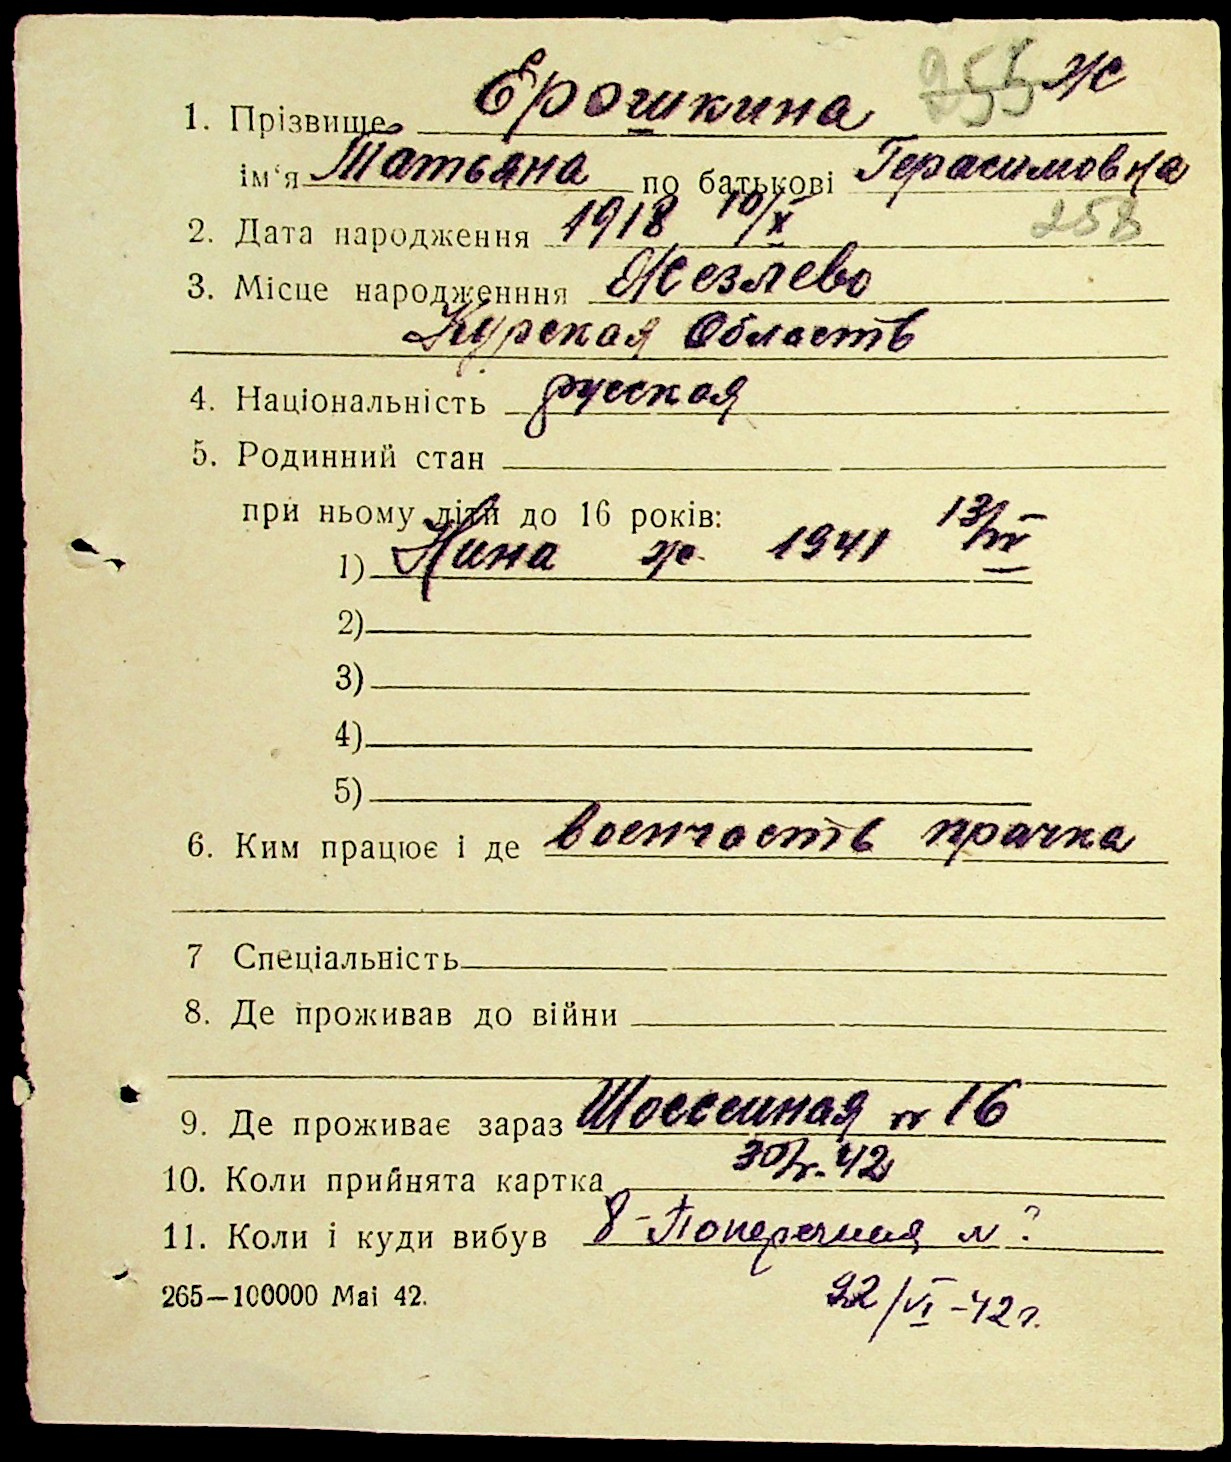 255 ж
1. Прізвище Ерошкина
ім'я Татьяна по батькові Герасимовна
2. Дата народження 1918 10/X 258
3. Місце народженння Жезлево
Курская Область
4. Національність русская
5. Родинний стан
при ньому діти до 16 років:
1) Нина ж. 1941
2)
3)
4)
5)
6. Ким працює і де воинчасть прачка
7 Спеціальність
8. Де проживав до війни
9. Де проживає зараз Шоссейная № 16
10. Коли прийнята картка 30/V-42
11. Коли і куди вибув 8-Поперечная № ?
265—100000 Mai 42.
22/VI-42 г.